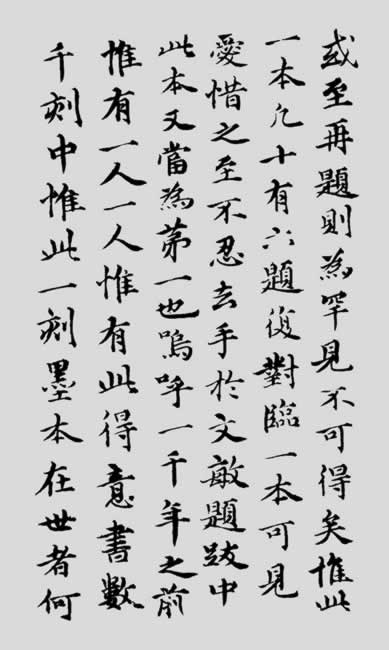 或至再題則為罕見不可得矣惟此
一本凡十有六題復對臨一本可見
愛惜之至不忍去手於文敏題跋中
此本又當為第一也嗚呼一千年之前
惟有一人一人惟有此得意書數
千刻中惟此一刻墨本在世者何